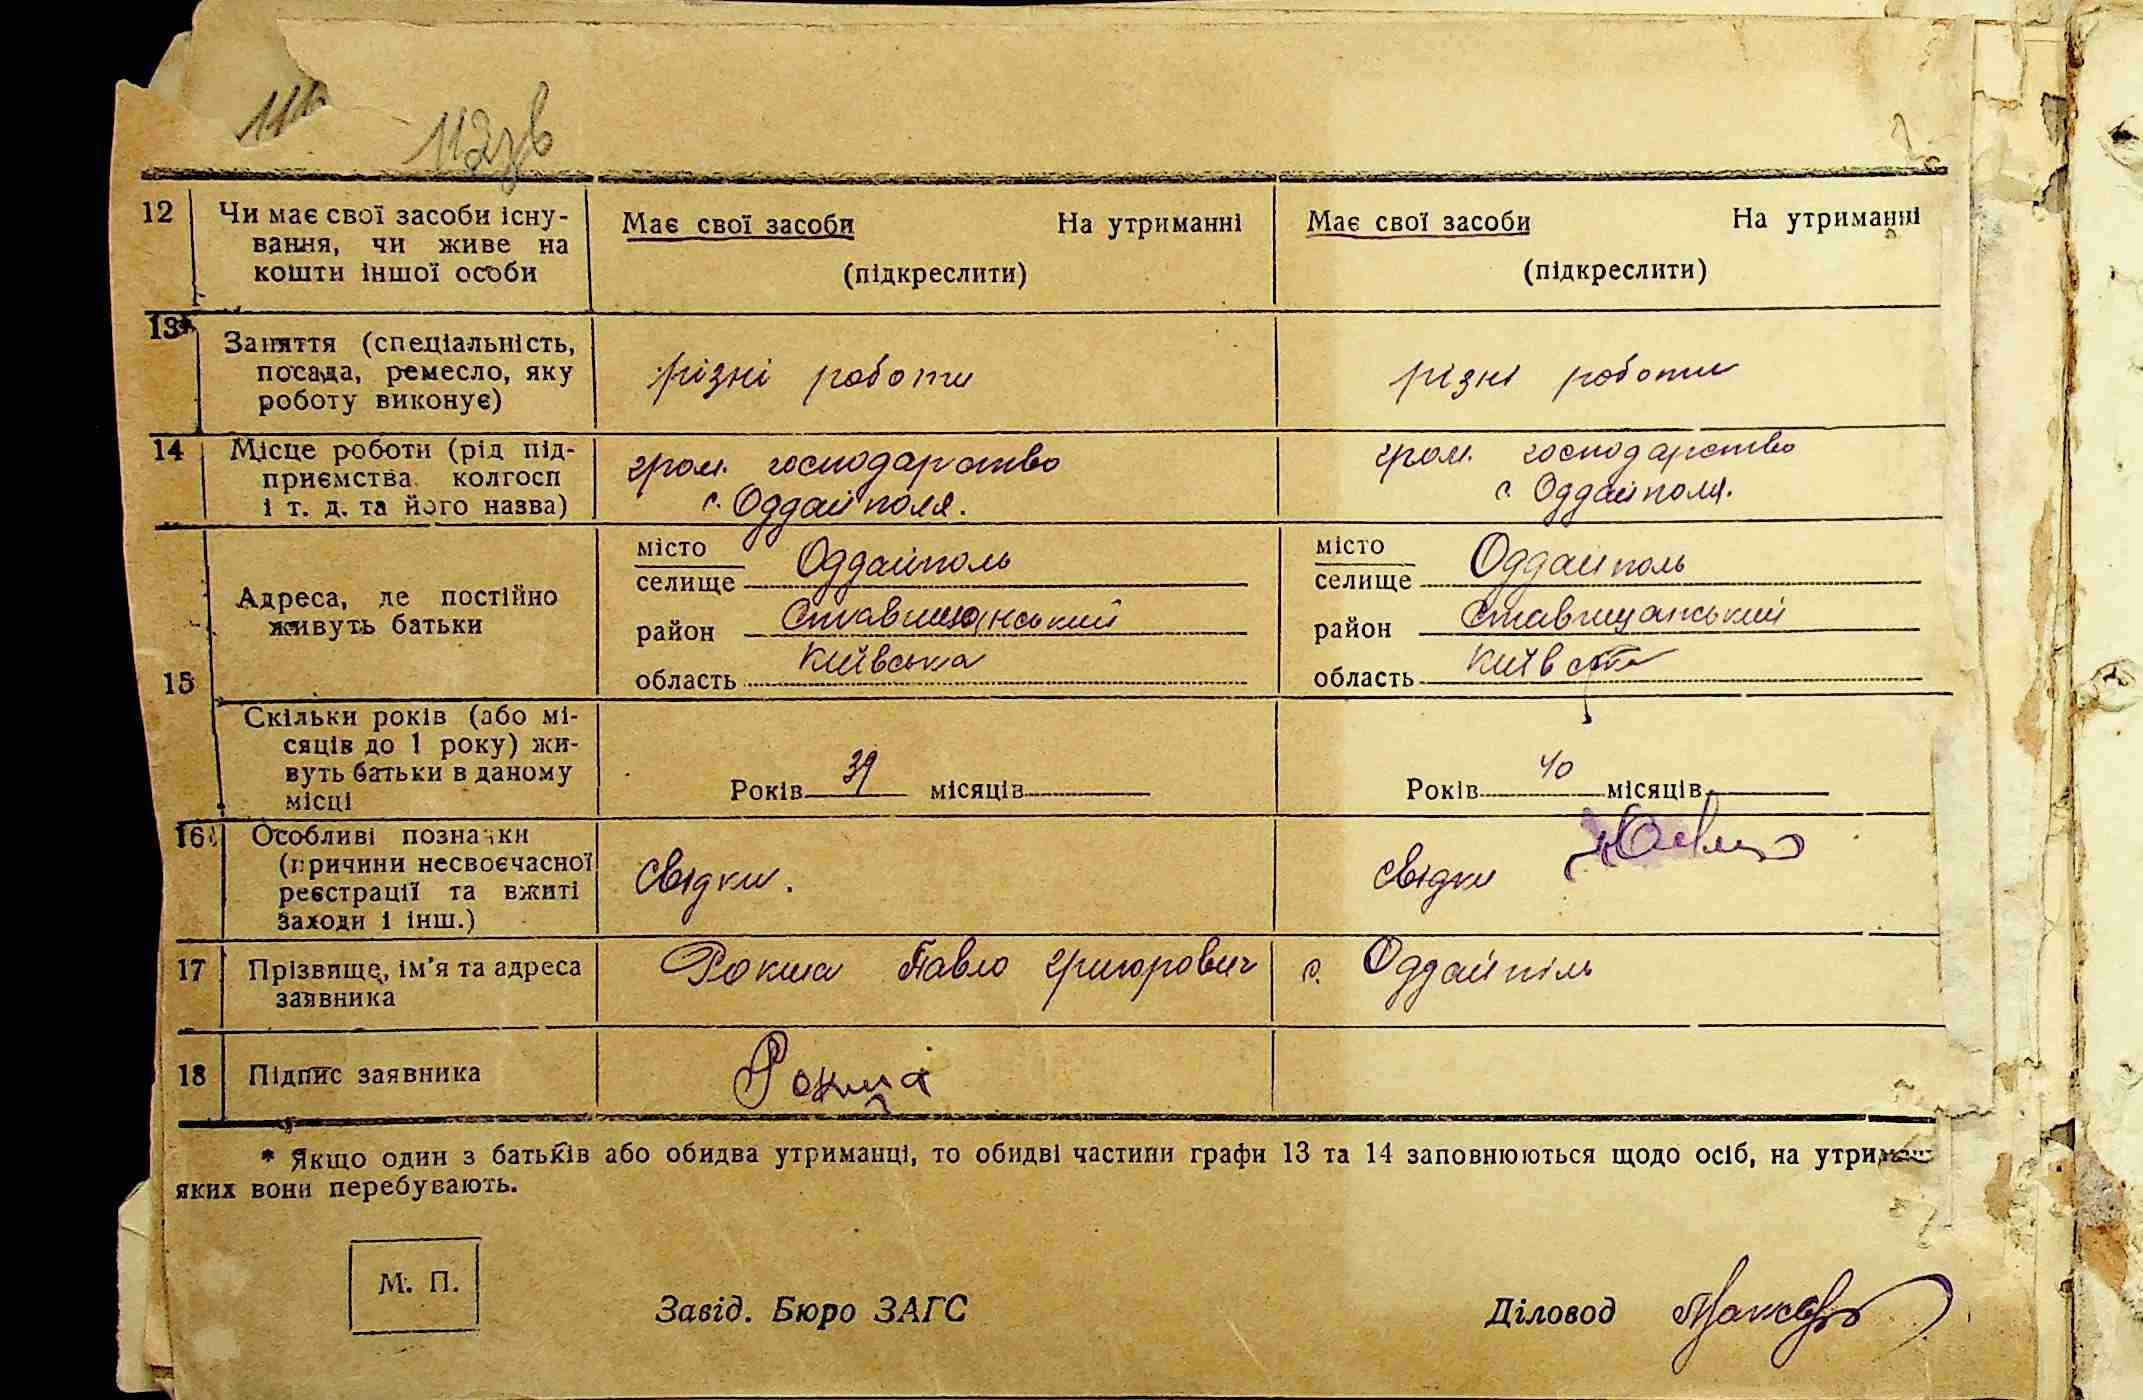 112зв
12 Чи має свої засоби існу-
вання, чи живе на
кошти іншої особи
Має свої засоби На утриманні
(підкреслити)
Має свої засоби На утриманні
(підкреслити)
13* Заняття (спеціальність,
посада, ремесло, яку
роботу виконує)
різні роботи
різні роботи
14 Місце роботи (рід під-
приємства, колгосп
і т. д. та його назва)
гром. господарство
с. Оддайполя.
гром. господарство
с. Оддайполя.
15 Адреса, де постійно
живуть батьки
місто
селище Оддайполь
район Ставищанський
область Київська
місто
селище Оддайполь
район Ставищанський
область Київська
Скільки років (або мі-
сяців до 1 року) жи-
вуть батьки в даному
місці
Років 39 місяців
Років 40 місяців
16 Особливі познаки
(причини несвоєчасної
реєстрації та вжиті
заходи і інш.)
Свідки.
Свідки
17 Прізвище, ім'я та адреса
заявника
Рокша Павло Григорович
с. Оддайпіль
18 Підпис заявника
Рокша
* Якщо один з батьків або обидва утриманці, то обидві частини графи 13 та 14 заповнюються щодо осіб, на утриман
яких вони перебувають.
М. П.
Завід. Бюро ЗАГС
Діловод